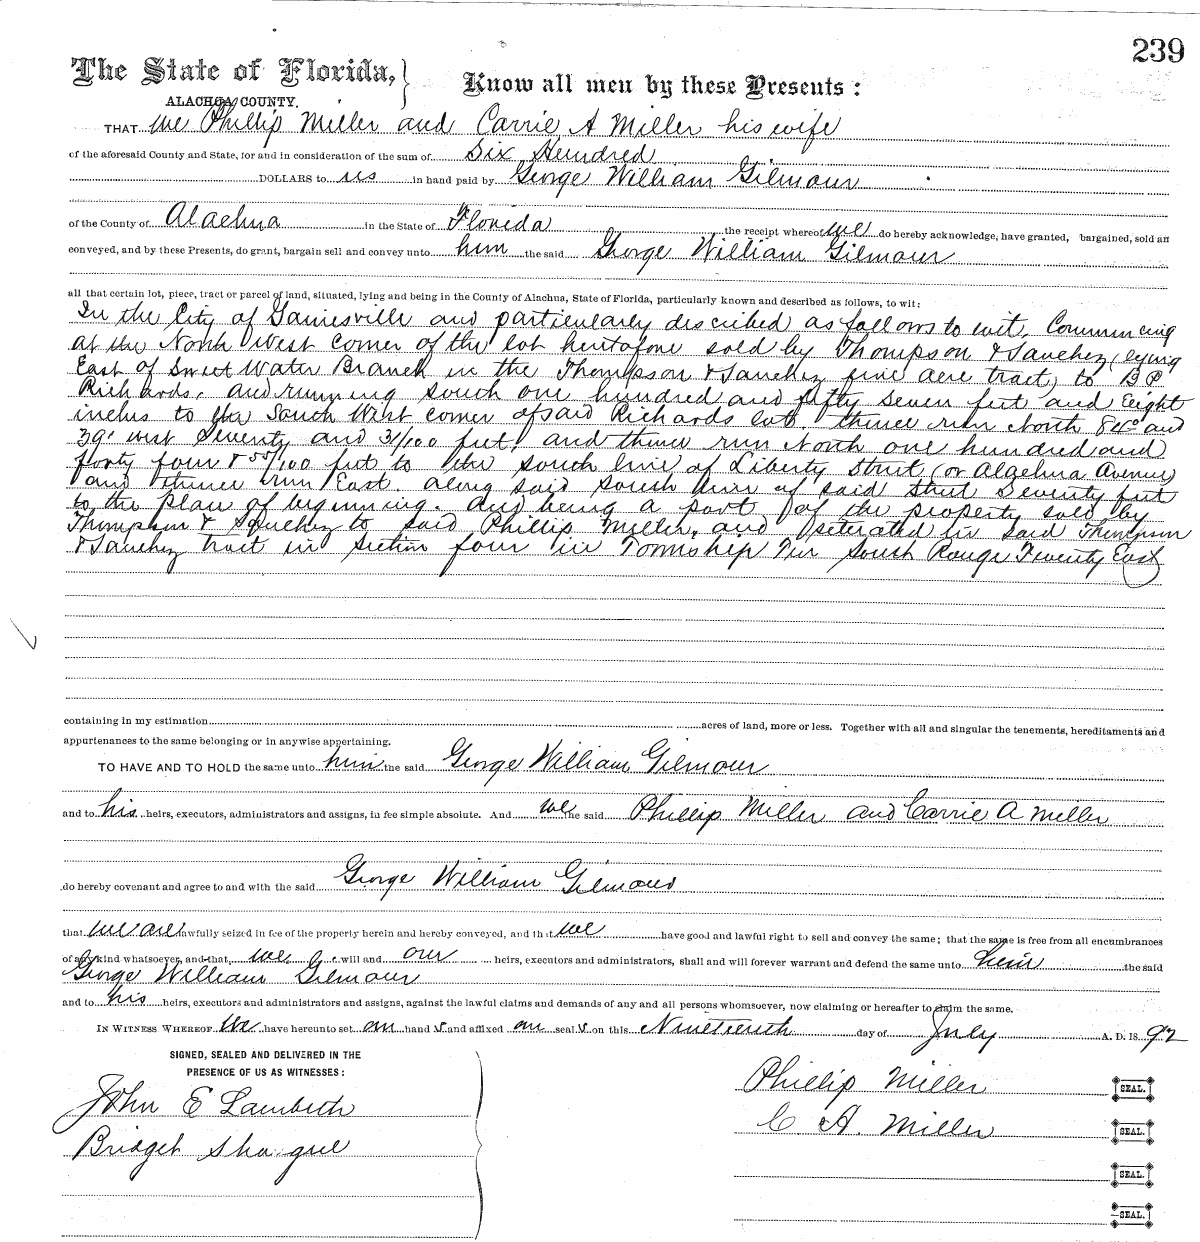 239
The State of Florida, Know all men by these Presents:
ALACHUA COUNTY.
THAT we Phillip Miller and Carrie A Miller his wife
of the aforesaid County and State, for and in consideration of the sum of Six Hundred
DOLLARS to us in hand paid by George William Gilmour
of the County of Alachua in the State of Florida the receipt whereof we do hereby acknowledge, have granted, bargained, sold an
conveyed, and by these Presents, do grant, bargain sell and convey unto him the said George William Gilmour
all that certain lot, piece, tract or parcel of land, situated, lying and being in the County of Alachua, State of Florida, particularly known and described as follows, to wit:
In the City of Gainesville and particularly described as follows to wit. Commencing
at the North West corner of the lot heretofore sold by Thompson & Sanchez (lying
East of Sweet Water Branch in the Thompson & Sanchez five acre tract) to B P
Richards, and running south one hundred and fifty seven feet and Eight
inches to the South West corner of said Richards lot. thence run North 86° and
39' west Seventy and 31/100 feet, and thence run North one hundred and
forty four & 55/100 feet to the south line of Liberty Street (or Alachua Avenue)
and thence run East along said south line of said street Seventy feet
to the place of beginning. and being a part of the property sold by
Thompson & Sanchez to said Phillip Miller, and situated in said Thompson
& Sanchez tract in section four in Township Ten South Range Twenty East
containing in my estimation acres of land, more or less. Together with all and singular the tenements, hereditaments and
appurtenances to the same belonging or in anywise appertaining.
TO HAVE AND TO HOLD the same unto him the said George William Gilmour
and to his heirs, executors, administrators and assigns, in fee simple absolute. And we the said Phillip Miller and Carrie A Miller
do hereby covenant and agree to and with the said George William Gilmour
that we are lawfully seized in fee of the property herein and hereby conveyed, and that we have good and lawful right to sell and convey the same; that the same is free from all encumbrances
of any kind whatsoever, and that, we will and our heirs, executors and administrators, shall and will forever warrant and defend the same unto him the said
George William Gilmour
and to his heirs, executors and administrators and assigns, against the lawful claims and demands of any and all persons whomsoever, now claiming or hereafter to claim the same.
IN WITNESS WHEREOF We have hereunto set our hand s and affixed our seal s on this Nineteenth day of July A. D. 18 92
SIGNED, SEALED AND DELIVERED IN THE
PRESENCE OF US AS WITNESSES:
Phillip Miller SEAL.
John E Lambeth
C A. Miller SEAL.
Bridget
SEAL.
SEAL.